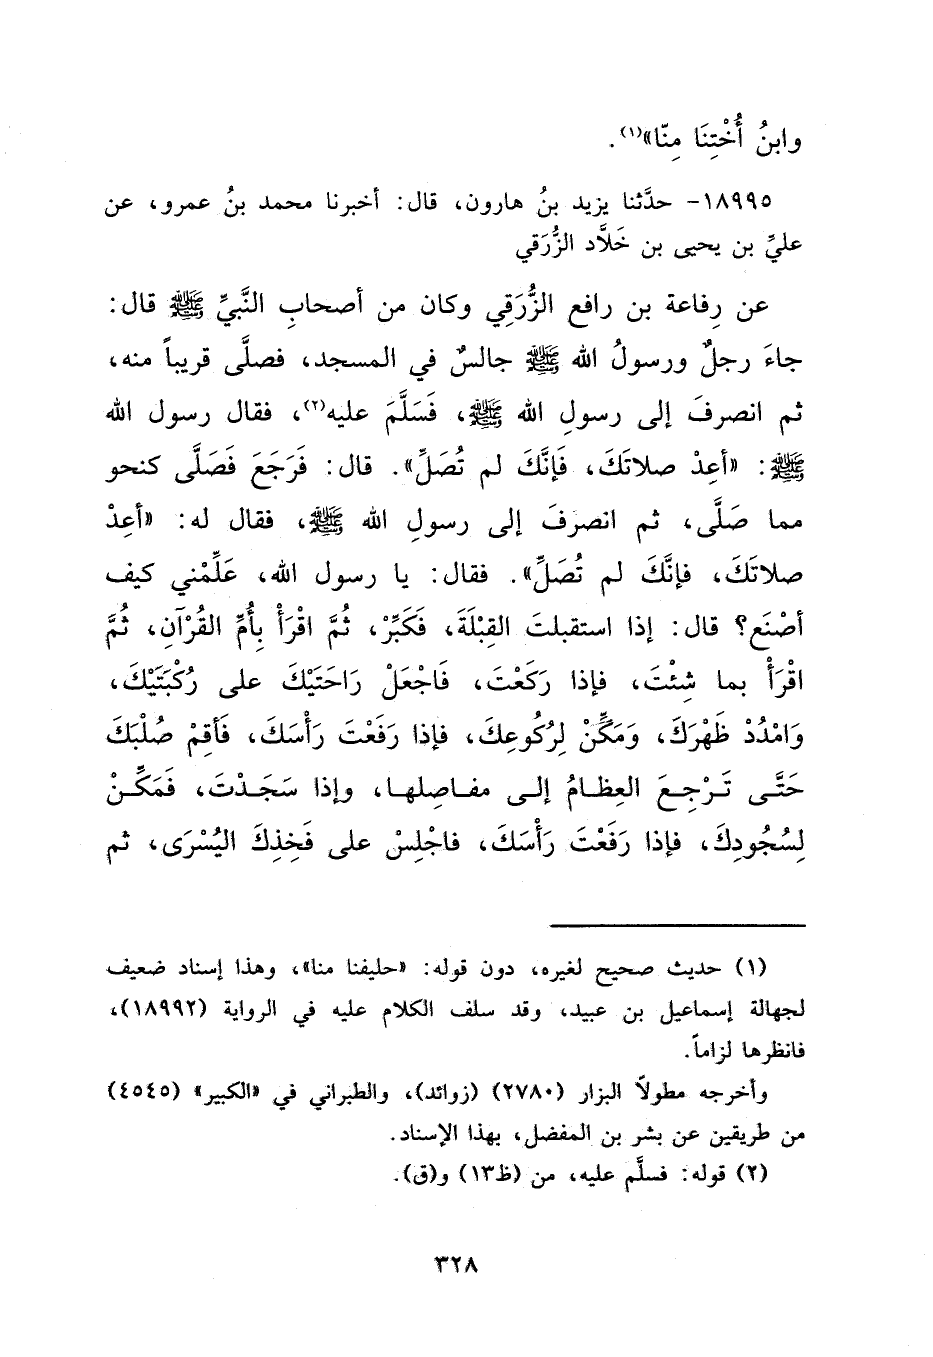 وابنُ أُخْتِنَا مِنّا»(١).
١٨٩٩٥- حدَّثنا يزيد بنُ هارون، قال: أخبرنا محمد بنُ عمرو، عن
عليِّ بن يحيى بن خَلَّاد الزُّرَقي
عن رِفاعة بن رافع الزُّرَقِي وكان من أصحابِ النَّبيِّ ﷺ قال:
جاءَ رجلٌ ورسولُ الله ﷺ جالسٌ في المسجد، فصلَّى قريباً منه،
ثم انصرفَ إلى رسولِ الله ﷺ، فَسَلَّمَ عليه(٢)، فقال رسول الله
ﷺ: «أعِدْ صلاتَكَ، فَإنَّكَ لم تُصَلِّ». قال: فَرَجَعَ فَصَلَّى كنحو
مما صَلَّى، ثم انصرَفَ إلى رسولِ الله ﷺ، فقال له: «أعِدْ
صلاتَكَ، فإنَّكَ لم تُصَلِّ». فقال: يا رسول الله، عَلِّمْني كيف
أصْنَع؟ قال: إذا استقبلتَ القِبْلَةَ، فَكَبِّرْ، ثُمَّ اقْرَأْ بِأُمِّ القُرْآنِ، ثُمَّ
اقْرَأْ بما شِئْتَ، فإذا رَكَعْتَ، فَاجْعَلْ رَاحَتَيْكَ على رُكْبَتَيْكَ،
وَامْدُدْ ظَهْرَكَ، وَمَكِّنْ لِرُكُوعِكَ، فإذا رَفَعْتَ رَأْسَكَ، فَأقِمْ صُلْبَكَ
حَتَّى تَرْجِعَ العِظامُ إلى مفاصِلها، وإذا سَجَدْتَ، فَمَكِّنْ
لِسُجُودِكَ، فإذا رَفَعْتَ رَأْسَكَ، فاجْلِسْ على فَخِذِكَ اليُسْرَى، ثم
(١) حديث صحيح لغيره، دون قوله: «حليفنا منا»، وهذا إسناد ضعيف
لجهالة إسماعيل بن عبيد، وقد سلف الكلام عليه في الرواية (١٨٩٩٢)،
فانظرها لزاماً.
وأخرجه مطولاً البزار (٢٧٨٠) (زوائد)، والطبراني في «الكبير» (٤٥٤٥)
من طريقين عن بشر بن المفضل، بهذا الإسناد.
(٢) قوله: فسلَّم عليه، من (ظ١٣) و(ق).
٣٢٨